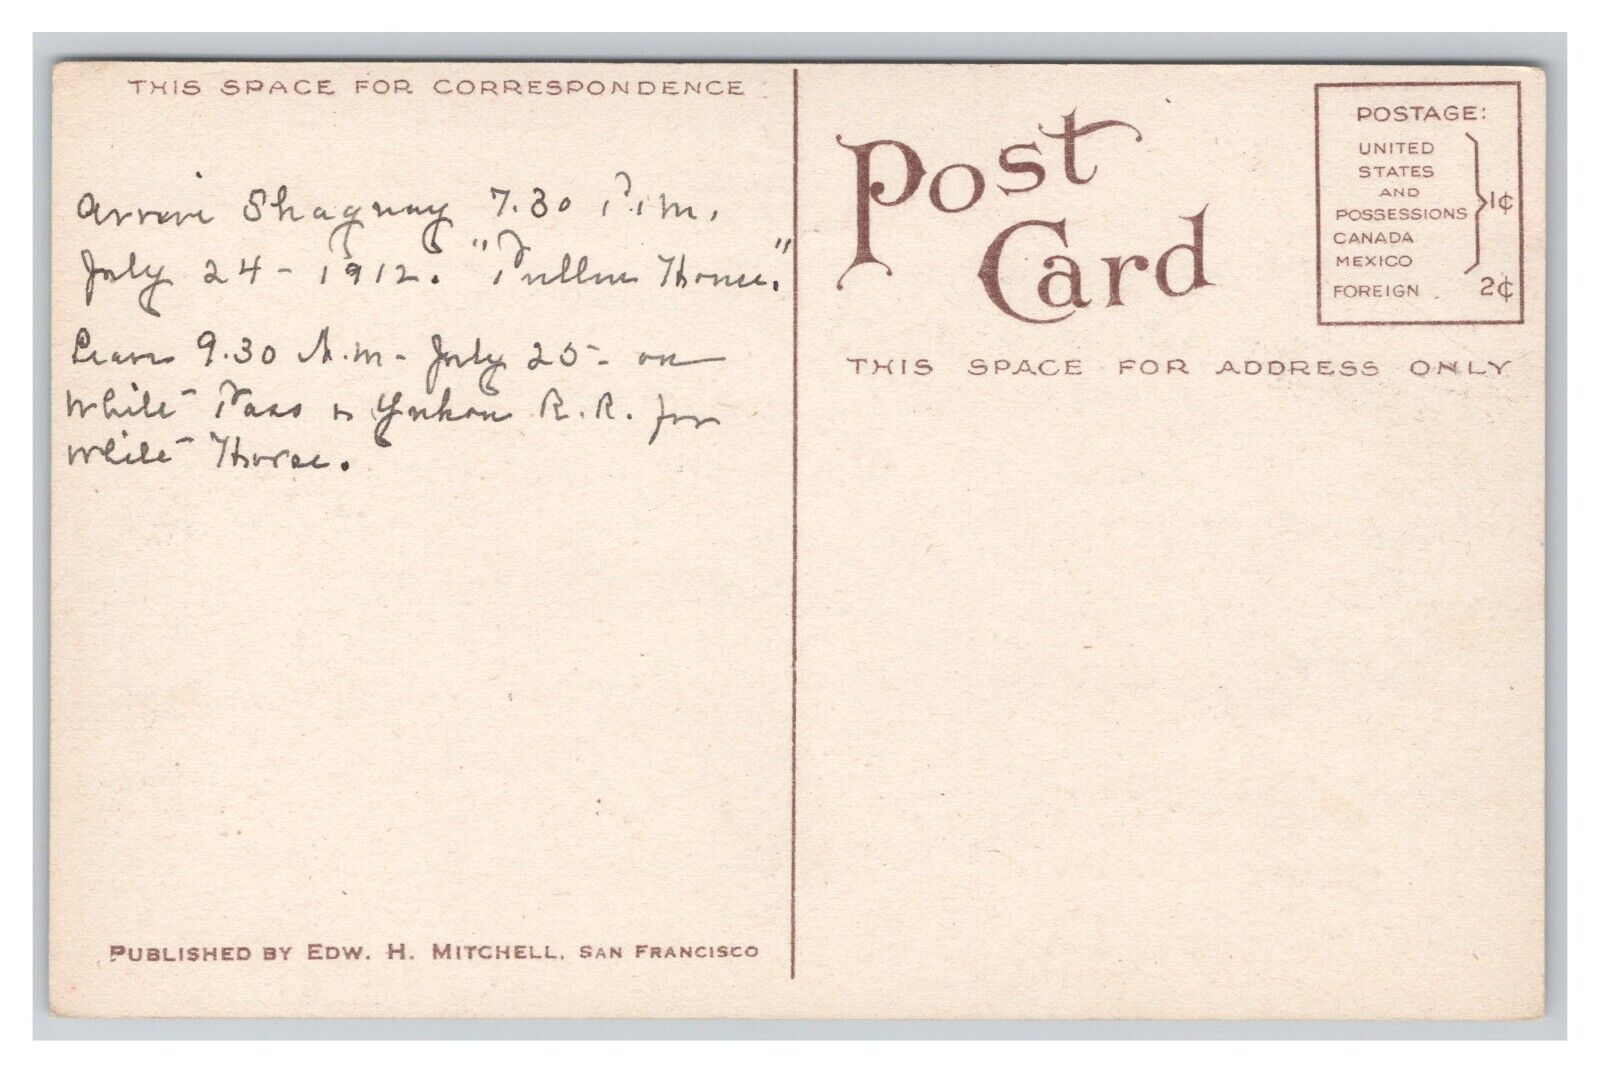 THIS SPACE FOR CORRESPONDENCE
Arrive Shaguay 7.30 P.M.
July 24 - 1912. "Pullen House."
Leave 9.30 A.M. - July 25 - on
White Pass & Yukon R.R. for
White Horse.
PUBLISHED BY EDW. H. MITCHELL, SAN FRANCISCO
Post
Card
POSTAGE:
UNITED
STATES
AND
POSSESSIONS
CANADA
MEXICO
1¢
FOREIGN 2¢
THIS SPACE FOR ADDRESS ONLY